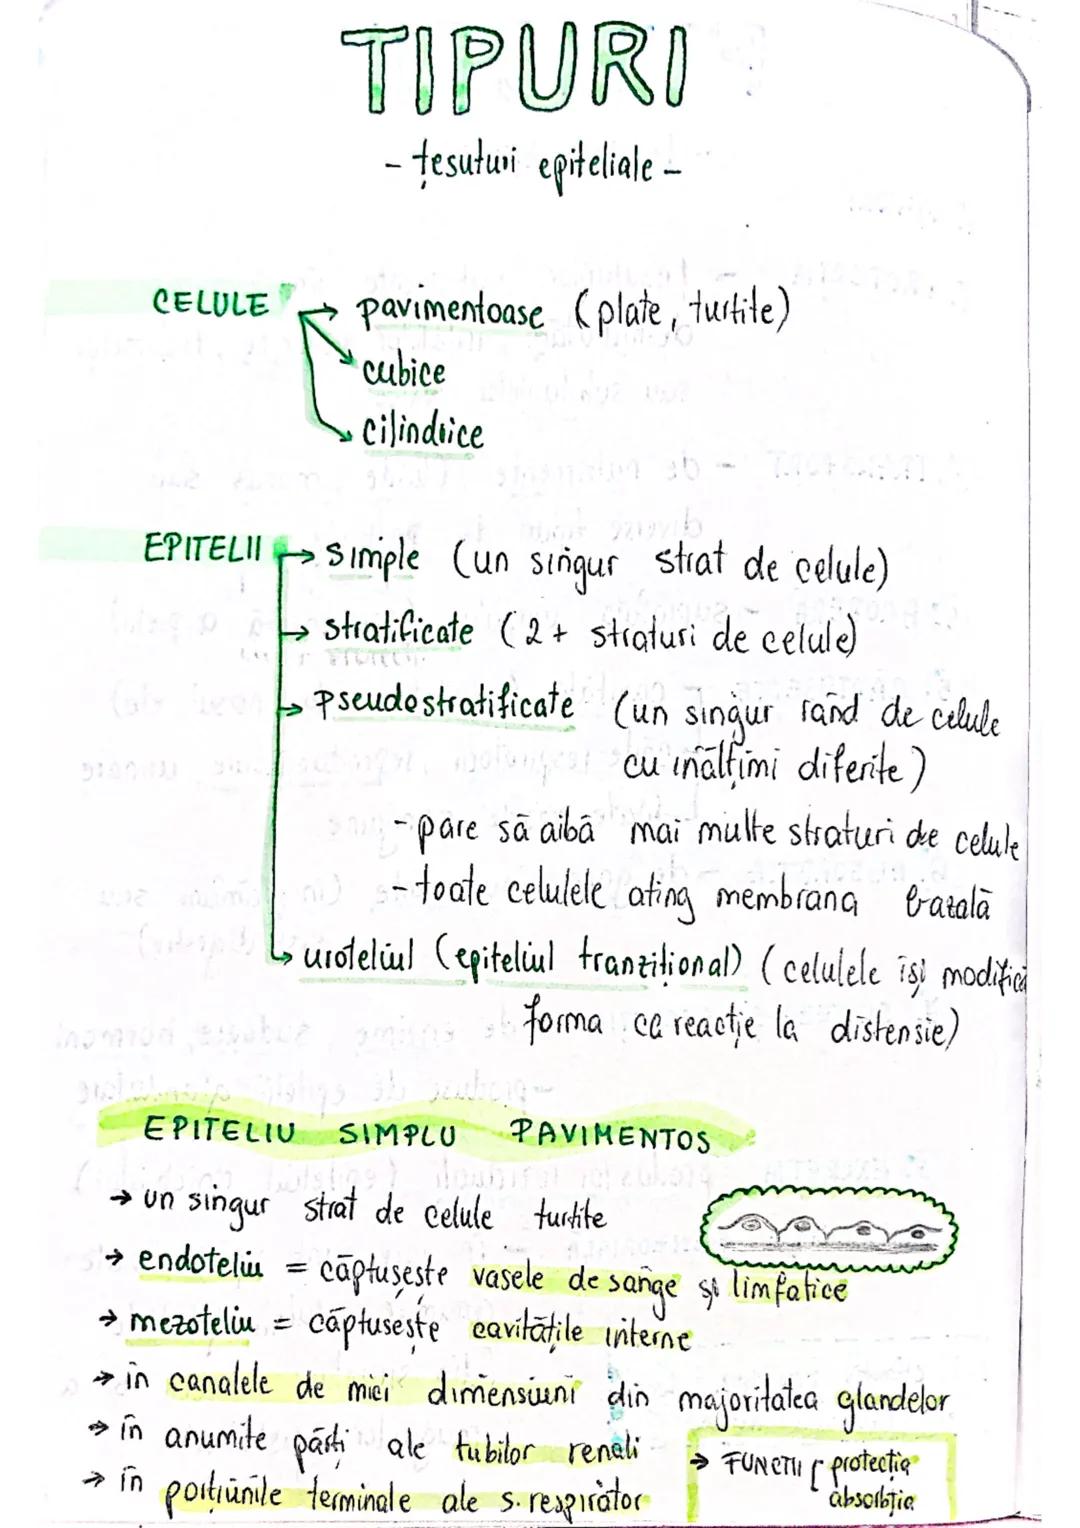 TIPURI
- țesuturi epiteliale -
CELULE → pavimentoase (plate, turtite)
→ cubice
→ cilindrice
EPITELII → simple (un singur strat de celule)
→ stratificate (2+ straturi de celule)
→ pseudostratificate (un singur rând de celule
cu înălțimi diferite)
- pare să aibă mai multe straturi de celule
- toate celulele ating membrana bazală
→ uroteliul (epiteliul tranzițional) (celulele își modifică
forma ca reacție la distensie)
EPITELIU SIMPLU PAVIMENTOS
→ un singur strat de celule turtite
→ endoteliu = căptușește vasele de sânge și limfatice
→ mezoteliu = căptușește cavitățile interne
→ în canalele de mici dimensiuni din majoritatea glandelor
→ în anumite părți ale tubilor renali
→ în porțiunile terminale ale s. respirator
→ FUNCȚII [ protecția
absorbția